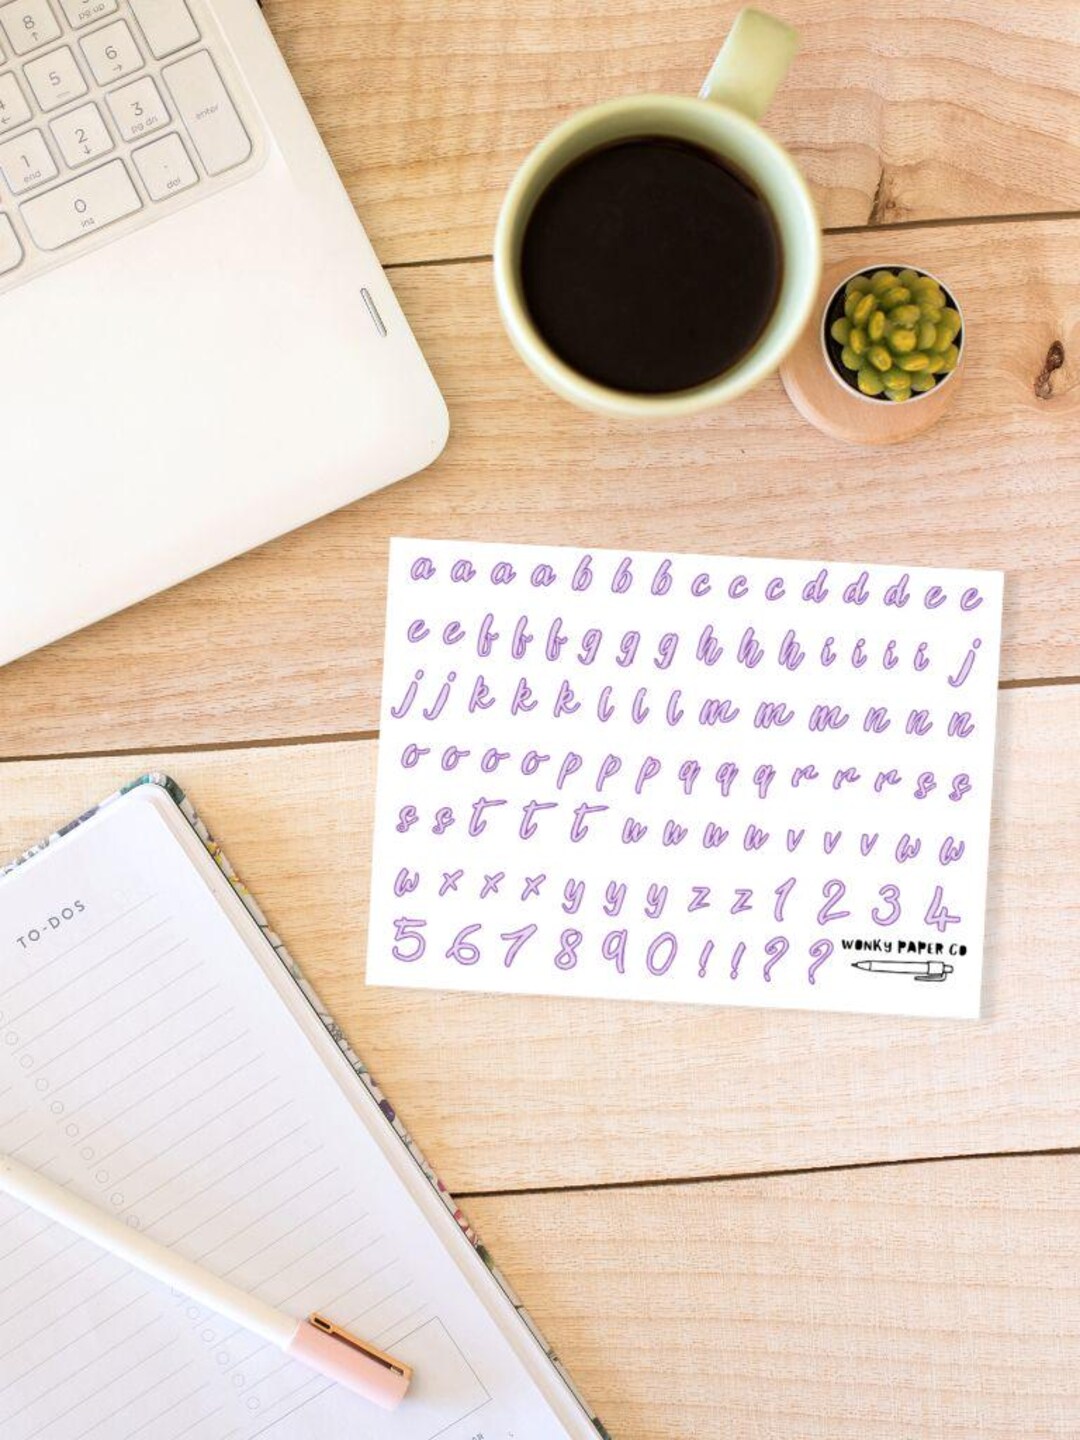 8
pg up
5
6
4
3
pg dn
enter
2
1
end
.
del
0
ins
a a a a b b b c c c d d d e e
e e f f f g g g h h h i i i i j
j j k k k l l l m m m n n n
o o o o p p p q q q r r r s s
s s t t t u u u u v v v w w
w x x x y y y z z 1 2 3 4
5 6 7 8 9 0 ! ! ? ?
WONKY PAPER CO
TO-DOS